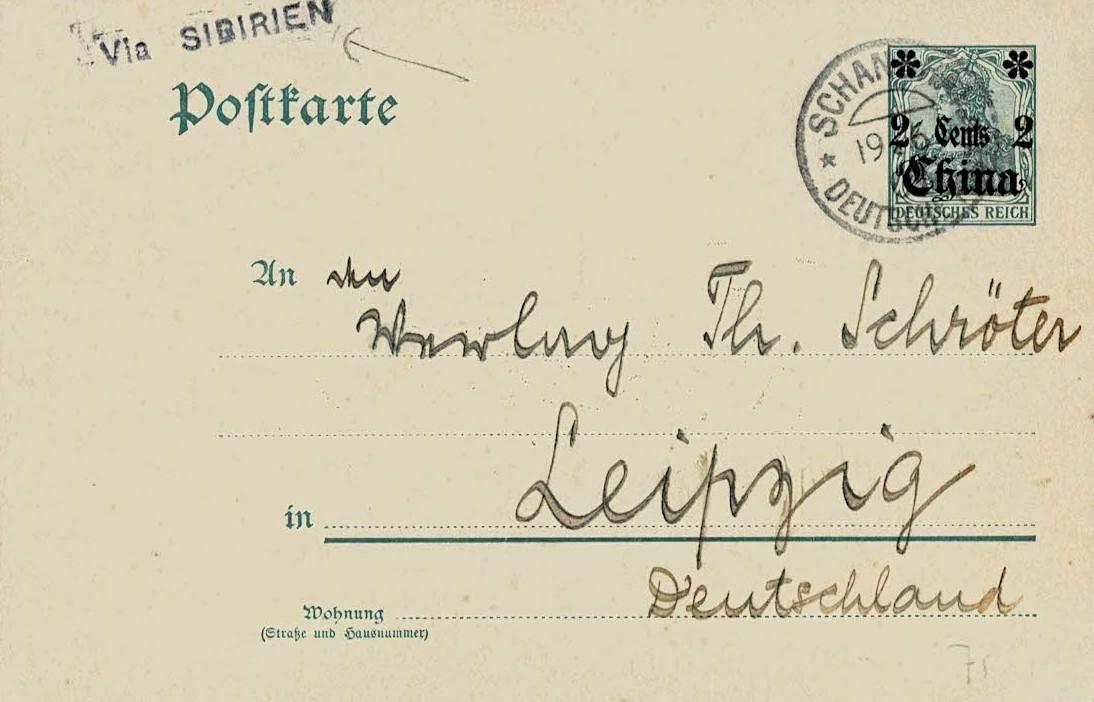 Via SIBIRIEN
Postkarte
SCHAN
19
DEUTSCHE
2 Cents 2
China
DEUTSCHES REICH
An den
Verlag Th. Schröter
Leipzig
in
Deutschland
Wohnung
(Straße und Hausnummer)
75